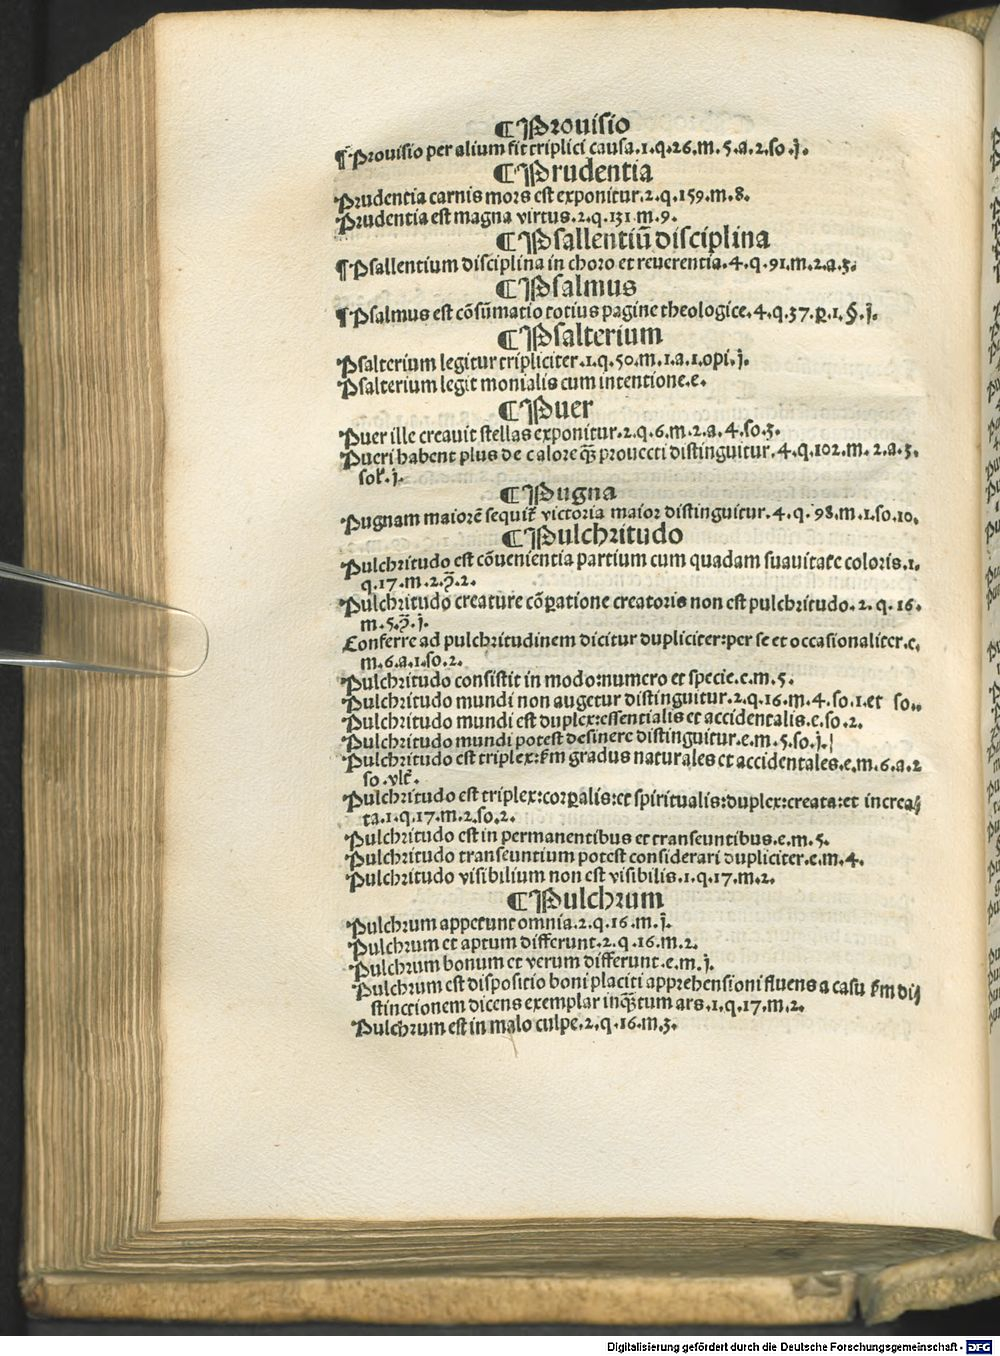 ¶Prouisio
¶Prouisio per alium fit triplici causa.1.q.26.m.5.a.2.so.j.
¶Prudentia
Prudentia carnis mors est exponitur.2.q.159.m.8.
Prudentia est magna virtus.2.q.131.m.9.
¶Psallentiū disciplina
¶Psallentium disciplina in choro et reuerentia.4.q.91.m.2.a.3.
¶Psalmus
¶Psalmus est cōsūmatio totius pagine theologice.4.q.37.p.1.§.j.
¶Psalterium
Psalterium legitur tripliciter.1.q.50.m.1.a.1.opi.j.
Psalterium legit monialis cum intentione.e.
¶Puer
Puer ille creauit stellas exponitur.2.q.6.m.2.a.4.so.3.
Pueri habent plus de calore q̄ꝫ prouecti distinguitur.4.q.102.m.2.a.3.
sol'.j.
¶Pugna
Pugnam maiorē sequit᷑ victoria maior distinguitur.4.q.98.m.1.so.10.
¶Pulchritudo
Pulchritudo est cōuenientia partium cum quadam suauitate coloris.1.
q.17.m.2.ꝙ̄.2.
Pulchritudo creature cōꝑatione creatoris non est pulchritudo.2.q.16.
m.5.ꝙ̄.j.
Conferre ad pulchritudinem dicitur dupliciter:per se et occasionaliter.e.
m.6.a.1.so.2.
Pulchritudo consistit in modo:numero et specie.e.m.5.
Pulchritudo mundi non augetur distinguitur.2.q.16.m.4.so.1.et so..
Pulchritudo mundi est duplex:essentialis et accidentalis.e.so.2.
Pulchritudo mundi potest desinere distinguitur.e.m.5.so.j.
Pulchritudo est triplex:ẜm gradus naturales et accidentales.e.m.6.a.2
so.vlt᷑.
Pulchritudo est triplex:corꝑalis:et spiritualis:duplex:creata:et increa⸗
ta.1.q.17.m.2.so.2.
Pulchritudo est in permanentibus et transeuntibus.e.m.5.
Pulchritudo transeuntium potest considerari dupliciter.e.m.4.
Pulchritudo visibilium non est visibilis.1.q.17.m.2.
¶Pulchrum
Pulchrum appetunt omnia.2.q.16.m.j.
Pulchrum et aptum differunt.2.q.16.m.2.
Pulchrum bonum et verum differunt.e.m.j.
Pulchrum est dispositio boni placiti apprehensioni fluens a casu ẜm di⸗
stinctionem dicens exemplar inq̄ꝫtum ars.1.q.17.m.2.
Pulchrum est in malo culpe.2.q.16.m.3.
Digitalisierung gefördert durch die Deutsche Forschungsgemeinschaft - DFG